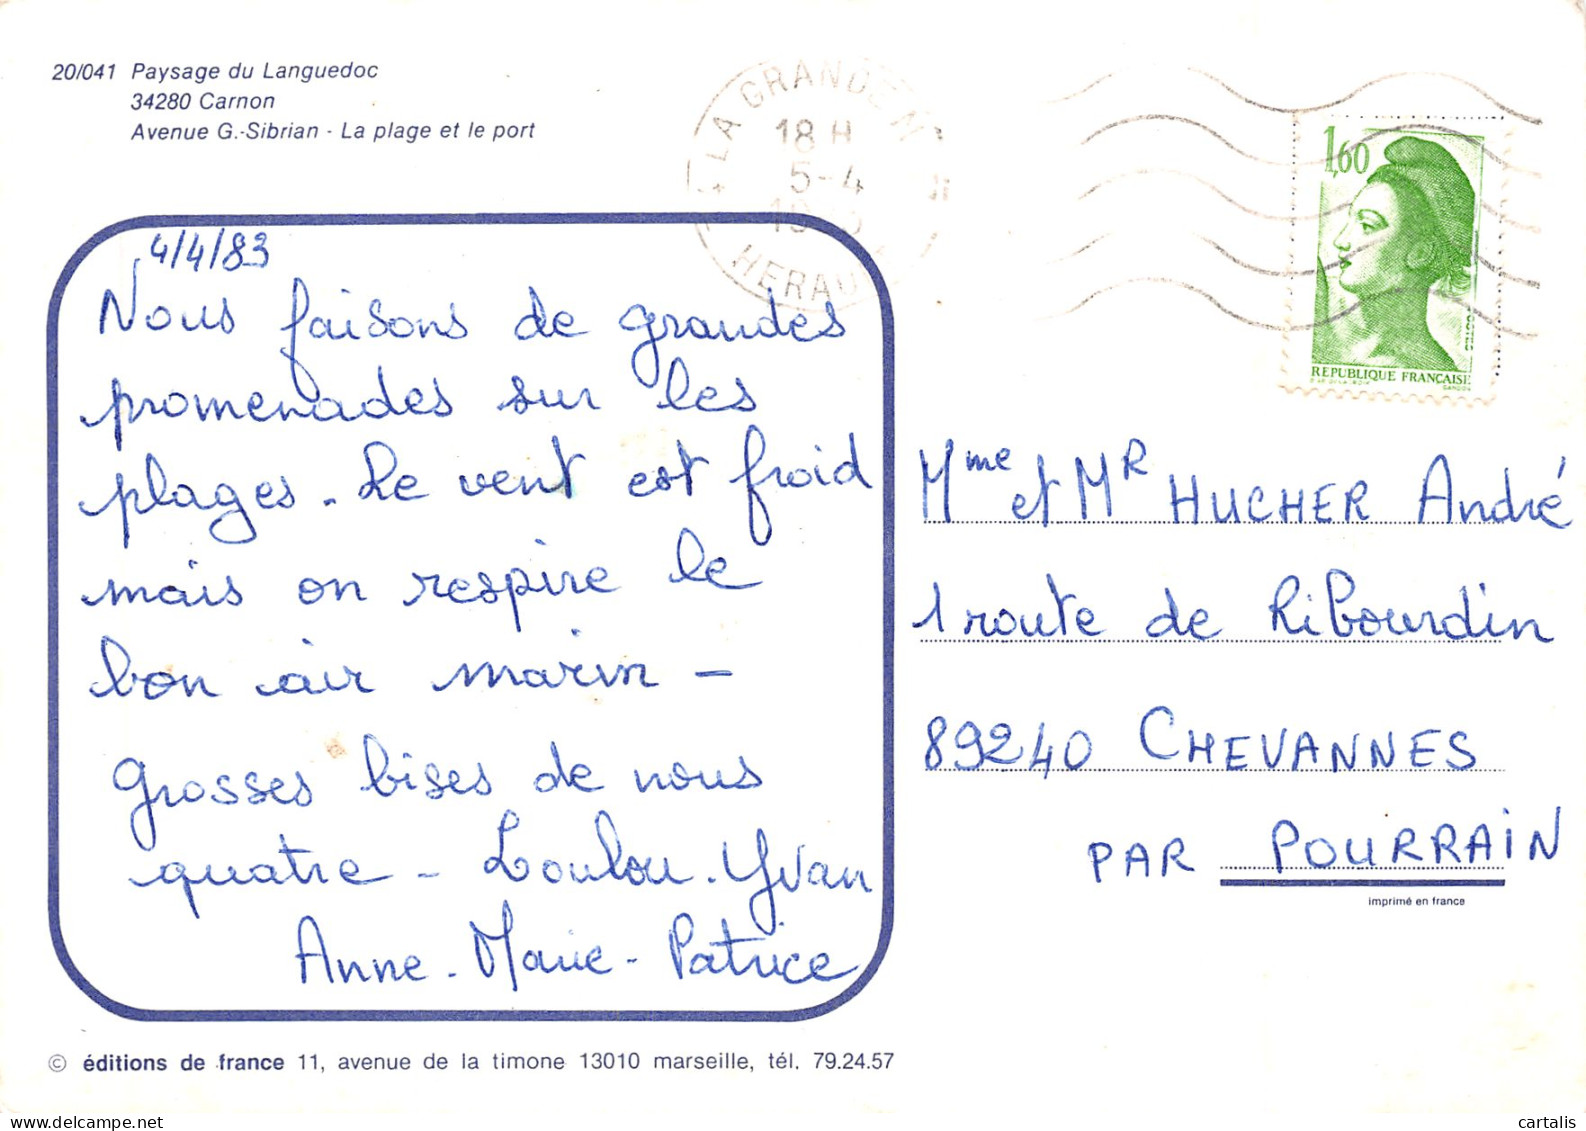 20/041 Paysage du Languedoc
34280 Carnon
Avenue G.-Sibrian - La plage et le port
LA GRANDE M
18 H
5-4
HERAU
1,60
REPUBLIQUE FRANCAISE
4/4/83
Nous faisons de grandes
promenades sur les
plages. Le vent est froid
mais on respire le
bon air marin -
Grosses bises de nous
quatre - Loulou. Yvan
Anne. Marie - Patrice
Mme et MR HUCHER André
1 route de Ribourdin
89240 CHEVANNES
PAR POURRAIN
imprimé en france
© éditions de france 11, avenue de la timone 13010 marseille, tél. 79.24.57
cartalis
www.delcampe.net